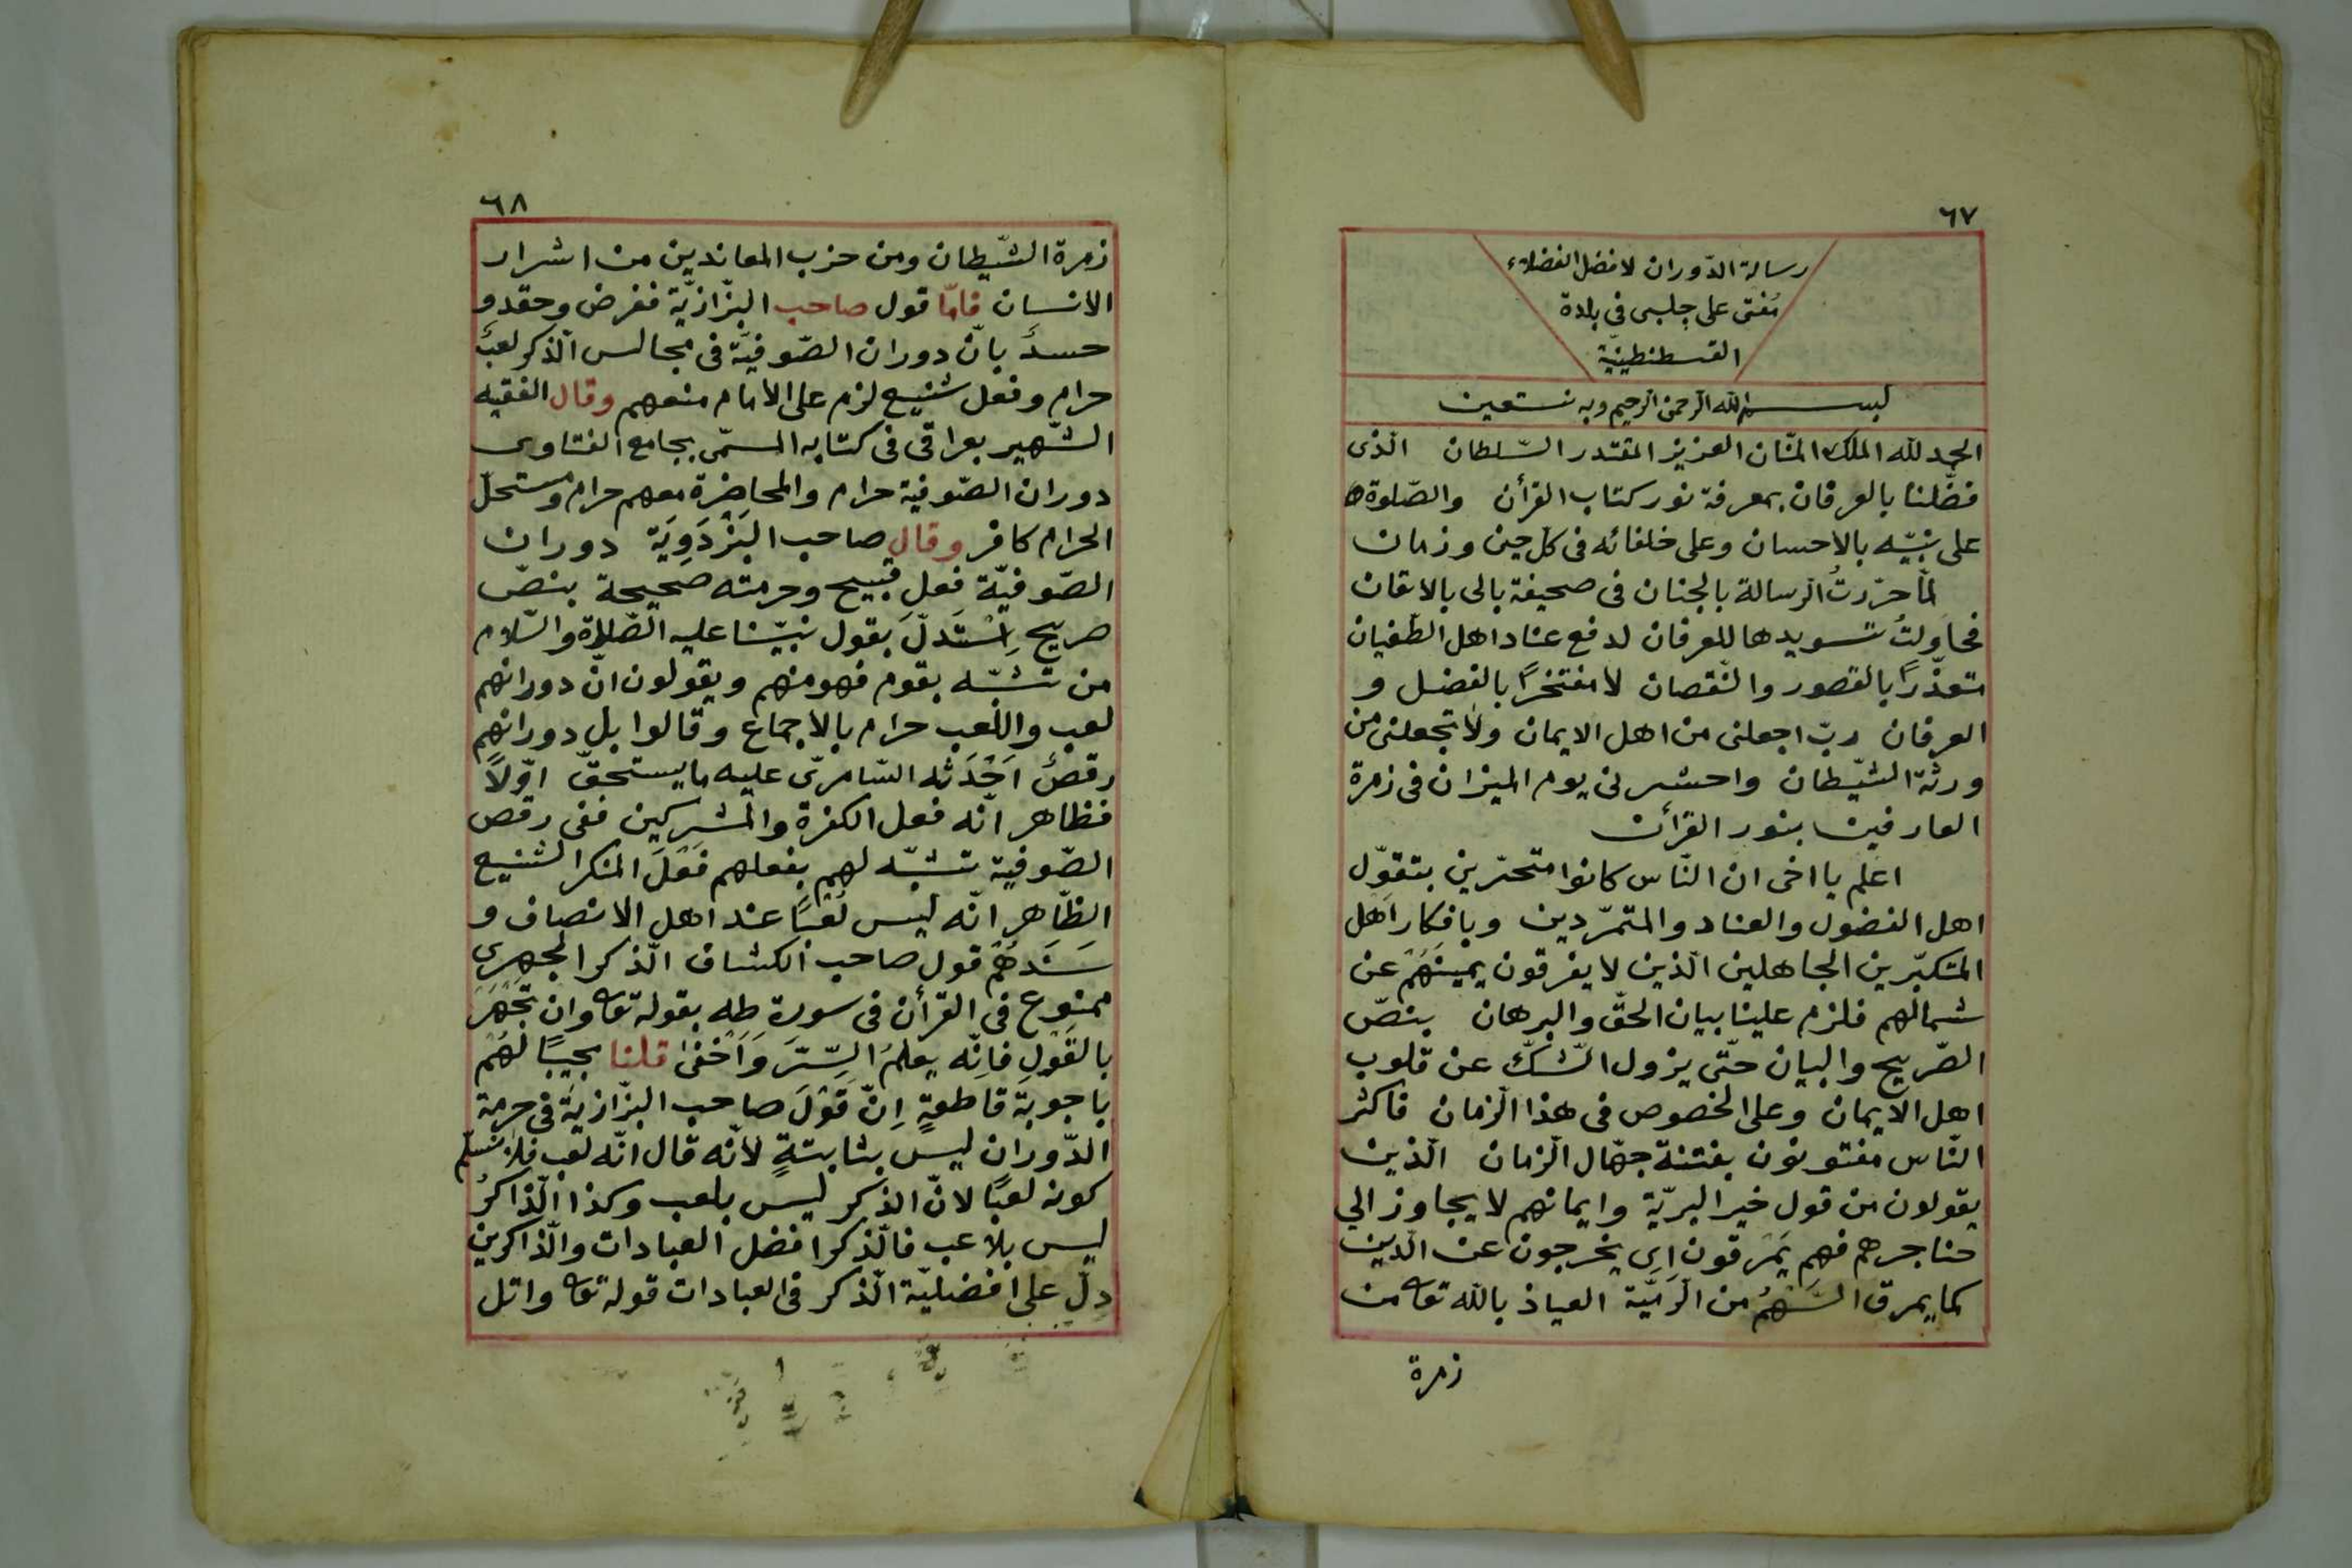 ٦٧
رسالة الدّوران لافضل الفضلاء
مُفتى على چلبى فى بلدة
القسطنطينيّة
بسم الله الرّحمن الرّحيم وبه نستعين
الحمد لله الملك المنّان العزيز المقتدر السّلطان الّذى
فضّلنا بالعرفان بمعرفة نور كتاب القرأن والصّلوة
على نبيّه بالاحسان وعلى خلفائه فى كل حين وزمان
لمّا حرّرتُ الرسالة بالجنان فى صحيفة بالى بالاتقان
فحاولتُ تسويدها للعرفان لدفع عناد اهل الطّغيان
متعذّرًا بالقصور والنّقصان لا مفتخرًا بالفضل و
العرفان ربّ اجعلنى من اهل الايمان ولا تجعلنى من
ورثة الشّيطان واحشرنى يوم الميزان فى زمرة
العارفين بنور القرأن
اعلم يا اخى ان النّاس كانوا متحيّرين بتقوّل
اهل الفضول والعناد والمتمرّدين وبافكار اهل
المتكبّرين الجاهلين الّذين لا يفرقون يمينَهُم عن
شمالهم فلزم علينا بيان الحقّ والبرهان بنصّ
الصّريح والبيان حتّى يزول الشّكّ عن قلوب
اهل الايمان وعلى الخصوص فى هذا الزمان فاكثر
النّاس مفتونون بفتنة جهّال الزمان الّذين
يقولون من قول خير البريّة وايمانهم لا يجاوز الى
حناجرهم فهم يَمرقون اى يخرجون عن الدّين
كما يمرق السَّهمُ من الرَّميَّة العياذ بالله تعا من
زمرة
٦٨
زمرة الشّيطان ومن حزب المعاندين من اشرار
الانسان فامّا قول صاحب البزّازيّة فغرض وحقد و
حسدٌ بانّ دوران الصّوفيّة فى مجالس الذكر لعبٌ
حرام وفعل شنيع لزم على الأمام منعهم وقال الفقيه
الشّهير بعراقى فى كتابه المسمّى بجامع الفتاوى
دوران الصّوفية حرام والمحاضرة معهم حرام ومستحلّ
الحرام كافر وقال صاحب البَزْدَوِيَة دوران
الصّوفيّة فعل قبيح وحرمته صحيحة بنصّ
صريح اِسْتَدلّ بقول نبيّنا عليه الصّلاة والسّلام
من تشبّه بقوم فهو منهم ويقولون انّ دورانهم
لعب واللّعب حرام بالاجماع وقالوا بل دورانهم
رقصٌ اَحْدَثَه السّامرىّ عليه ما يستحقّ اوّلاً
فظاهر انّه فعل الكفرة والمشركين ففى رقص
الصّوفية تشبّه لهم بفعلهم فَعَلَ المنكر الشنيع
الظّاهر انّه ليس لَعْبًا عند اهل الانصاف و
سَنَدهُم قول صاحب الكشاف الذكر الجهرى
ممنوع فى القرأن فى سورة طه بقوله تعا وان تجْهَرَ
بالقَوْلِ فَاِنّه يعلمُ السِّرَّ وَاَخْفٰى قلنا مجيبًا لهم
باجوبة قاطعةٍ اِنّ قَوْلَ صاحب البزّازيّة فى حرمة
الدّوران ليس بثابتةٍ لأنّه قال انّه لعب فلا نسلّم
كونه لعبًا لانّ الذكر ليس بلعب وكذا الذّاكرُ
ليس بلاعب فالذكر افضل العبادات والذّاكرين
دلّ على افضليّة الذكر فى العبادات قوله تعا واتل